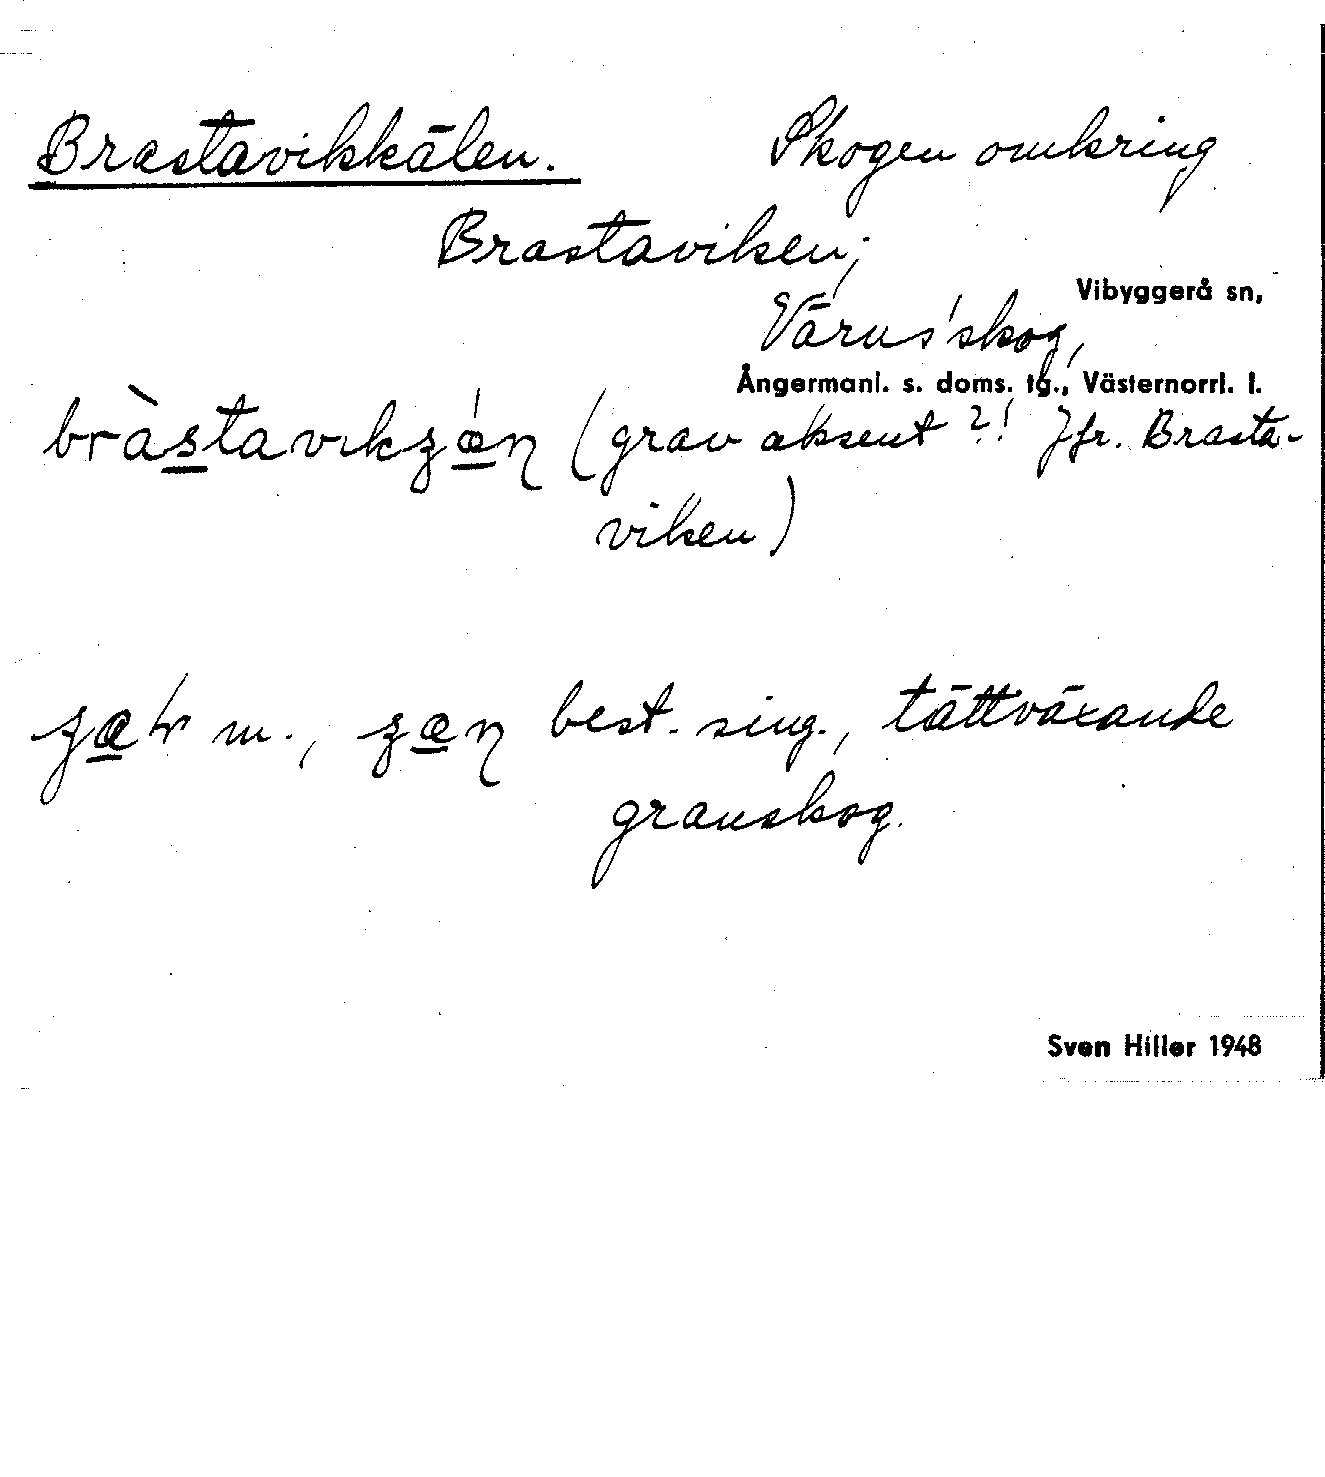 Brastavikkälen. Skogen omkring
Brastaviken;
Vibyggerå sn,
Värns'skog,
Ångermanl. s. doms. tg., Västernorrl. l.
(grav aksent?! Jfr. Brasta-
viken)
m., best. sing., tättväxande
granskog.
Sven Hiller 1948